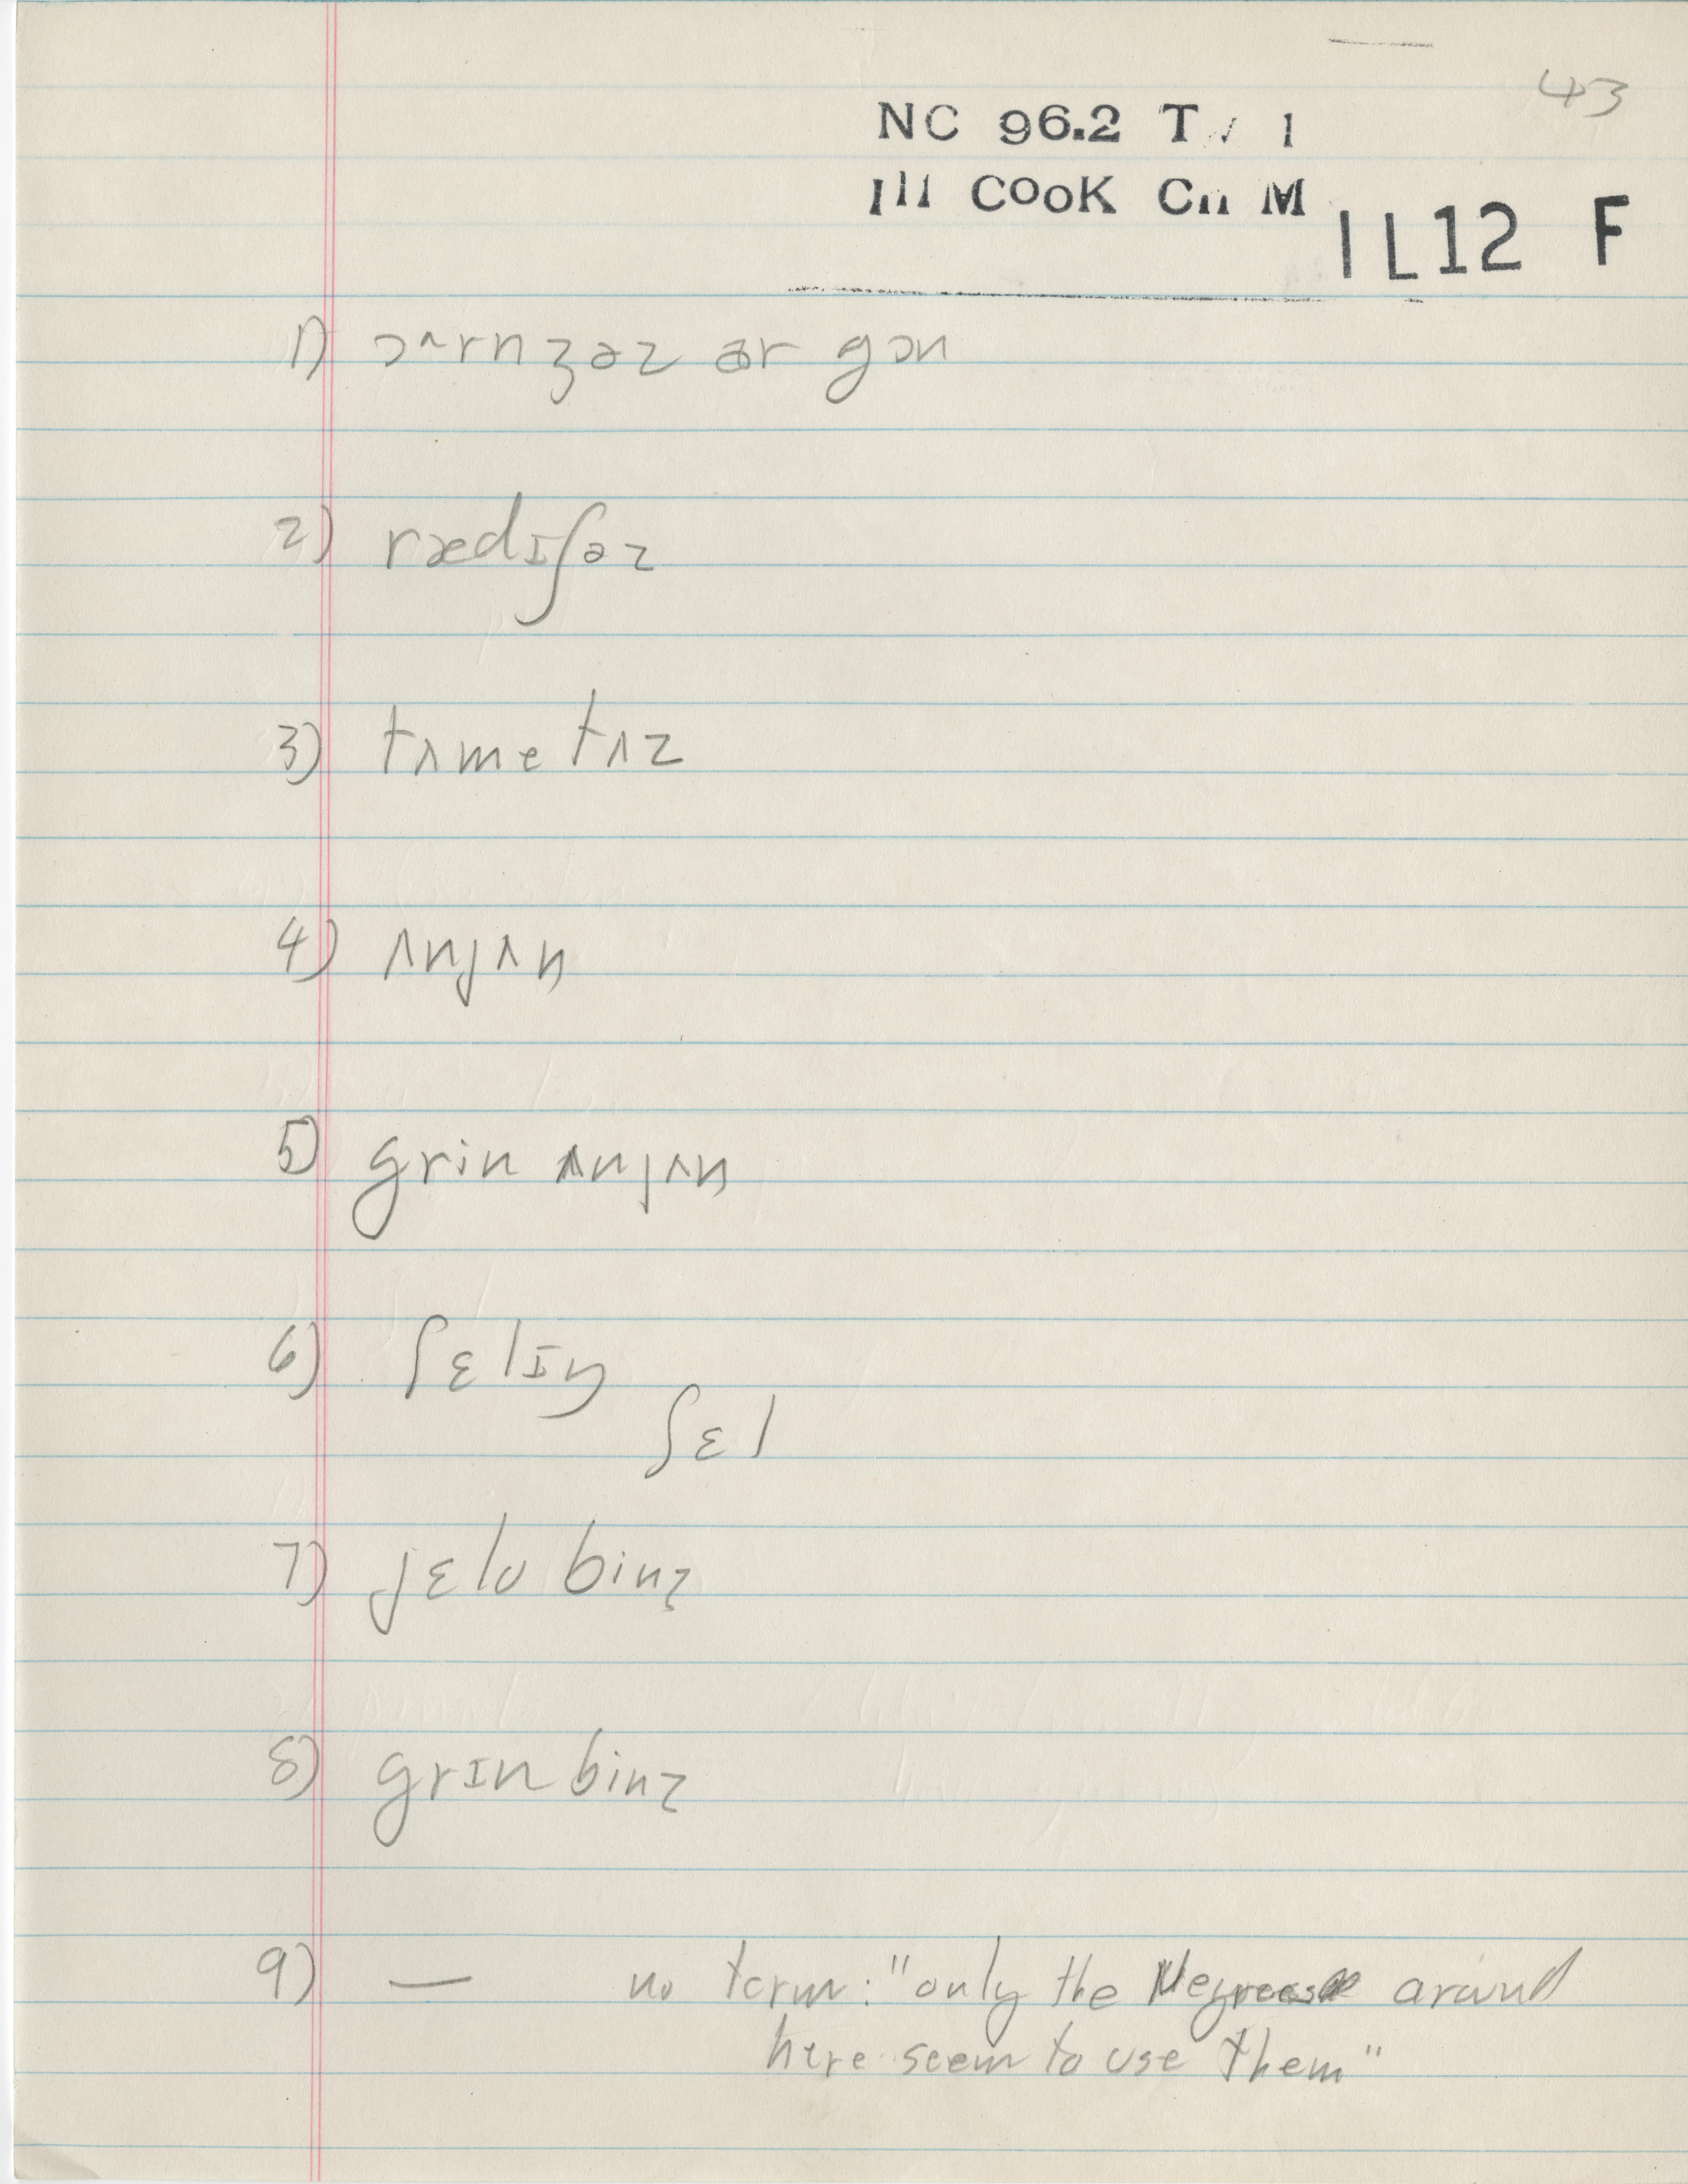 43
NC 96.2 T / 1
Ill COOK Ch M
IL12 F
1) ɔ^rnʒəz ar gɔn
2) rædɪʃəz
3) tʌmetʌz
4) ʌnjʌn
5) grin ʌnjʌn
6) ʃɛlɪŋ
ʃɛl
7) jɛlʊ binz
8) grɪn binz
9) — no term: "only the Negroes around
here seem to use them"